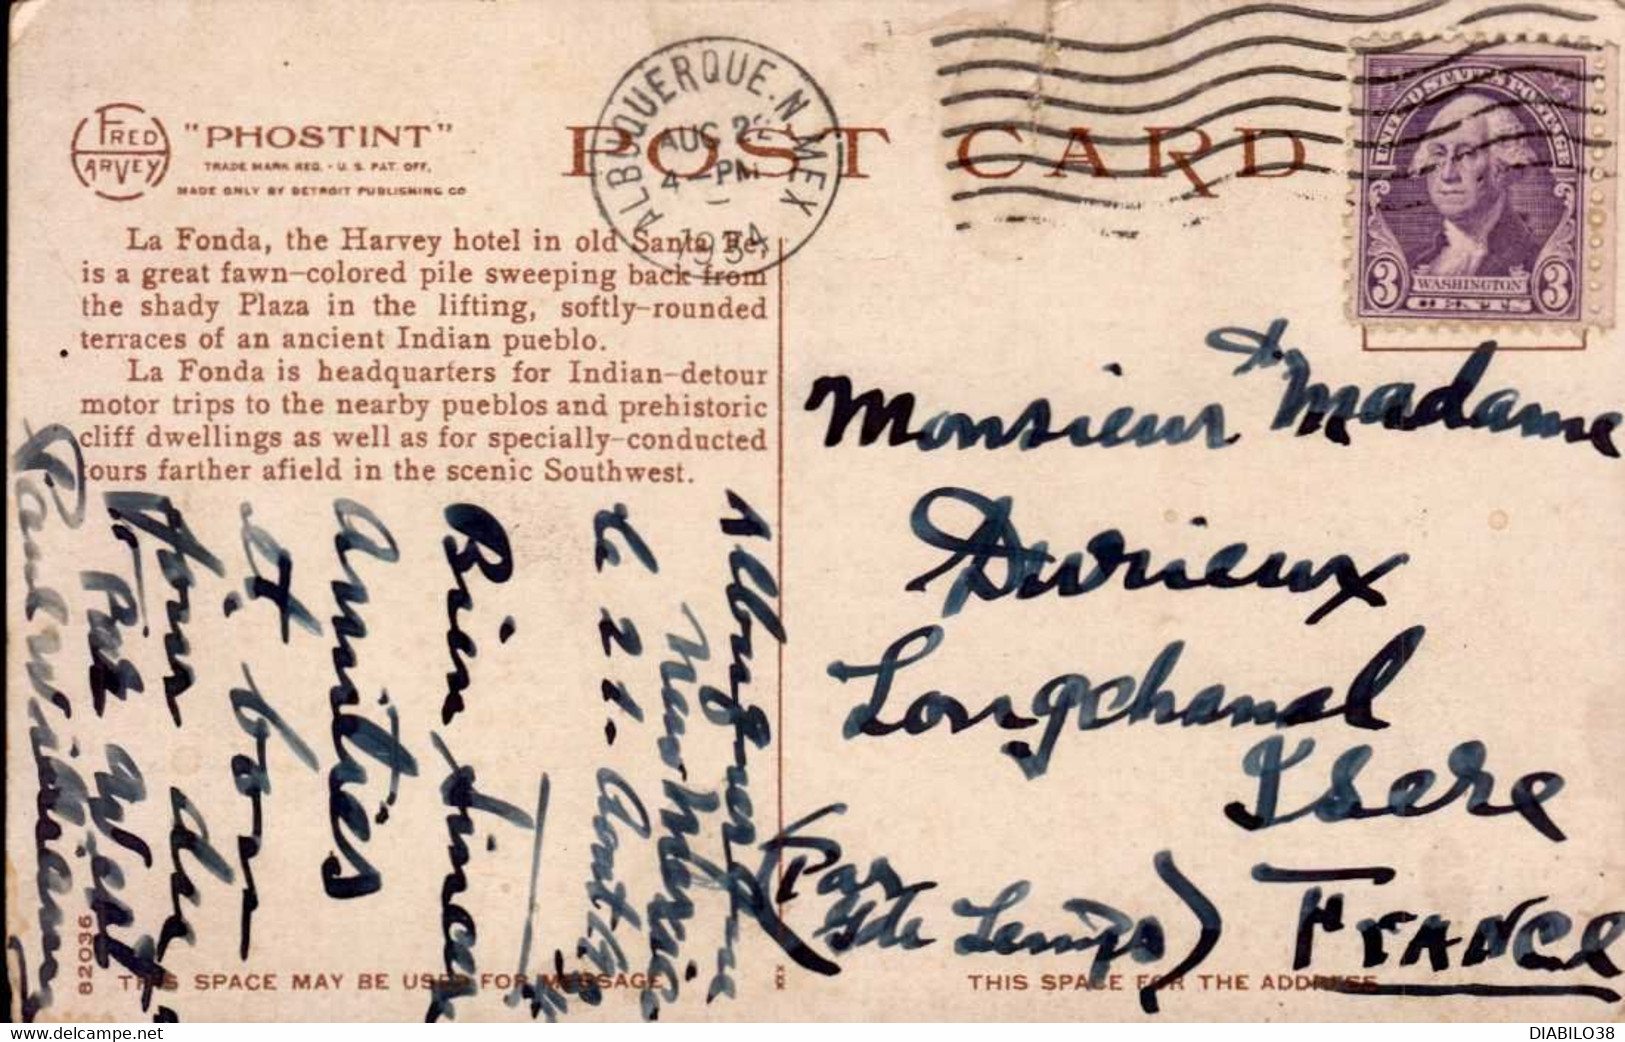 FRED
HARVEY
"PHOSTINT"
TRADE MARK REG. - U. S. PAT. OFF.
MADE ONLY BY DETROIT PUBLISHING CO
POST CARD
ALBUQUERQUE. N. MEX
AUG 22
4 - PM
1934
UNITED STATES POSTAGE
3 WASHINGTON 3
CENTS
La Fonda, the Harvey hotel in old Santa Fe,
is a great fawn-colored pile sweeping back from
the shady Plaza in the lifting, softly-rounded
terraces of an ancient Indian pueblo.
La Fonda is headquarters for Indian-detour
motor trips to the nearby pueblos and prehistoric
cliff dwellings as well as for specially-conducted
tours farther afield in the scenic Southwest.
Albuquerque
New Mexico
le 21. Août 34
Bien sincères
Amitiés
et bon
du
Far West
Paul
Monsieur & Madame
Durieux
Longchenal
Isere
(Par
Gde Lemps)
FRANCE
82036
THIS SPACE MAY BE USED FOR MESSAGE
XXX
THIS SPACE FOR THE ADDRESS
DIABILO38